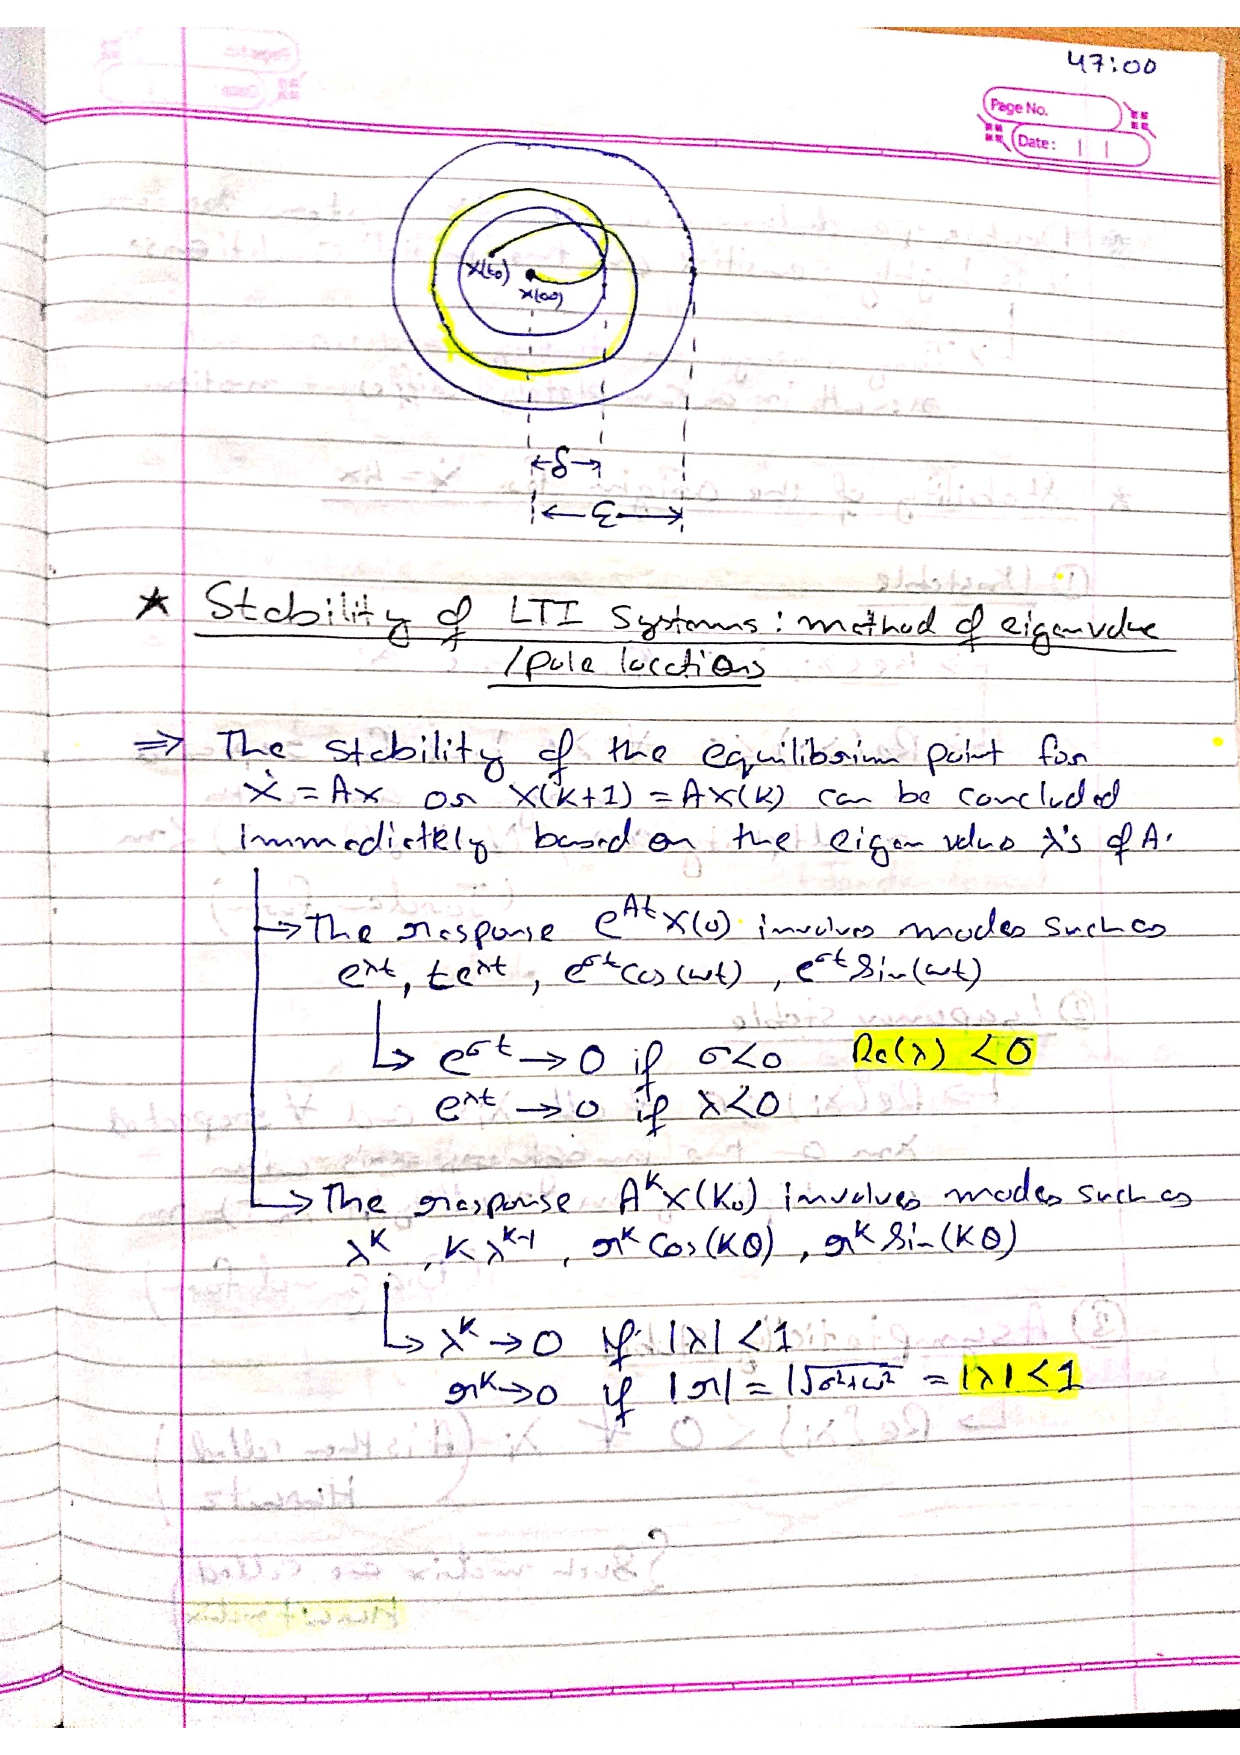 47:00
Page No.
Date:
x(t₀)
x(∞)
δ
ε
★ Stability of LTI Systems: method of eigenvalue
/pole locations
⇒ The stability of the equilibrium point for
ẋ = Ax or x(k+1) = Ax(k) can be concluded
immediately based on the eigen values λ's of A.
→ The response e^{At}x(0) involves modes such as
e^{λt}, te^{λt}, e^{σt}Cos(ωt), e^{σt}Sin(ωt)
↳ e^{σt} → 0 if σ<0 Re(λ) < 0
e^{λt} → 0 if λ<0
→ The response A^k x(k₀) involves modes such as
λ^k, kλ^{k-1}, r^k Cos(kθ), r^k Sin(kθ)
↳ λ^k → 0 if |λ| < 1
r^k → 0 if |r| = |√σ²+ω² = |λ| < 1